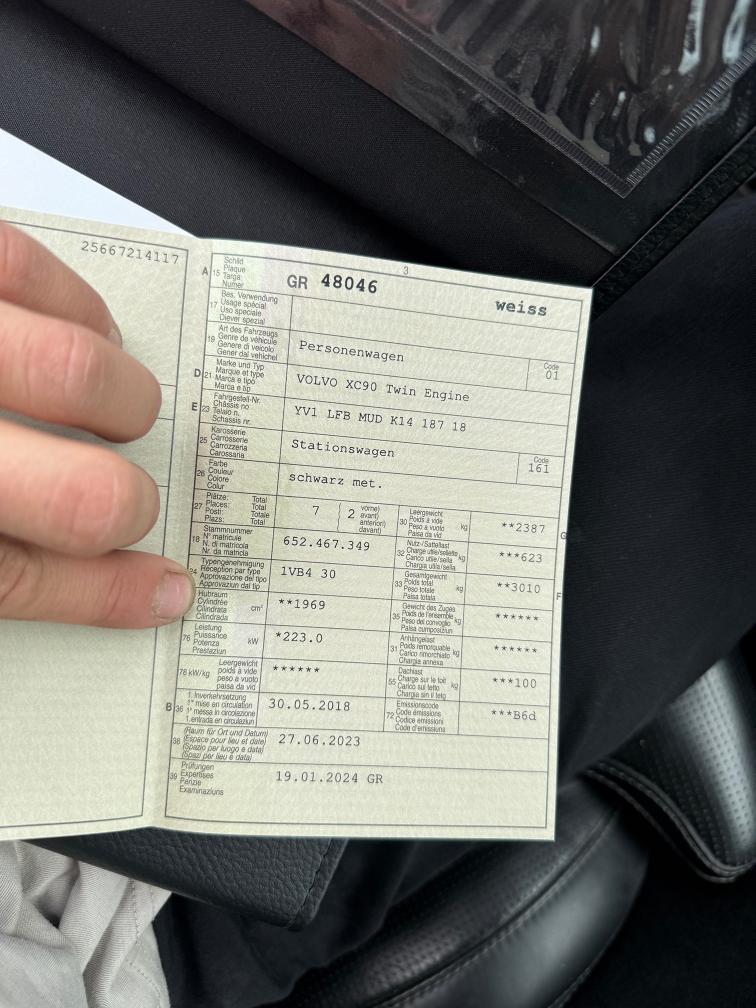 25667214117
3
A 15 Schild
Plaque
Targa
Numer
GR 48046
weiss
17 Bes. Verwendung
Usage spécial
Uso speciale
Diever spezial
19 Art des Fahrzeugs
Genre de véhicule
Genere di veicolo
Gener dal vehichel
Personenwagen
Code
01
D 21 Marke und Typ
Marque et type
Marca e tipo
Marca e tip
VOLVO XC90 Twin Engine
E 23 Fahrgestell-Nr.
Châssis no
Telaio n.
Schassis nr.
YV1 LFB MUD K14 187 18
25 Karosserie
Carrosserie
Carrozzeria
Carossaria
Stationswagen
Code
161
26 Farbe
Couleur
Colore
Colur
schwarz met.
27 Plätze: Total
Places: Total
Posti: Totale
Plazs: Total
7
2
vorne)
avant)
anteriori)
davant)
30 Leergewicht
Poids à vide
Peso a vuoto
Paisa da vid
kg
**2387
G
18 Stammnummer
N° matricule
N. di matricola
Nr. da matricla
652.467.349
32 Nutz-/Sattellast
Charge utile/sellette
Carico utile/sella
Chargia utila/sella
kg
***623
24 Typengenehmigung
Réception par type
Approvazione del tipo
Approvaziun dal tip
1VB4 30
33 Gesamtgewicht
Poids total
Peso totale
Paisa totala
kg
**3010
F
Hubraum
Cylindrée
Cilindrata
Cilindrada
cm³
**1969
35 Gewicht des Zuges
Poids de l'ensemble
Peso del convoglio
Paisa cumposiziun
kg
******
76 Leistung
Puissance
Potenza
Prestaziun
kW
*223.0
31 Anhängelast
Poids remorquable
Carico rimorchiato
Chargia annexa
kg
******
78 kW/kg
Leergewicht
poids à vide
peso a vuoto
paisa da vid
******
55 Dachlast
Charge sur le toit
Carico sul tetto
Chargia sin il tetg
kg
***100
B 36 1. Inverkehrsetzung
1re mise en circulation
1a messa in circolazione
1. entrada en circulaziun
30.05.2018
72 Emissionscode
Code émissions
Codice emissioni
Code d'emissiuns
***B6d
38 (Raum für Ort und Datum)
(Espace pour lieu et date)
(Spazio per luogo e data)
(Spazi per lieu e data)
27.06.2023
39 Prüfungen
Expertises
Perizie
Examinaziuns
19.01.2024 GR